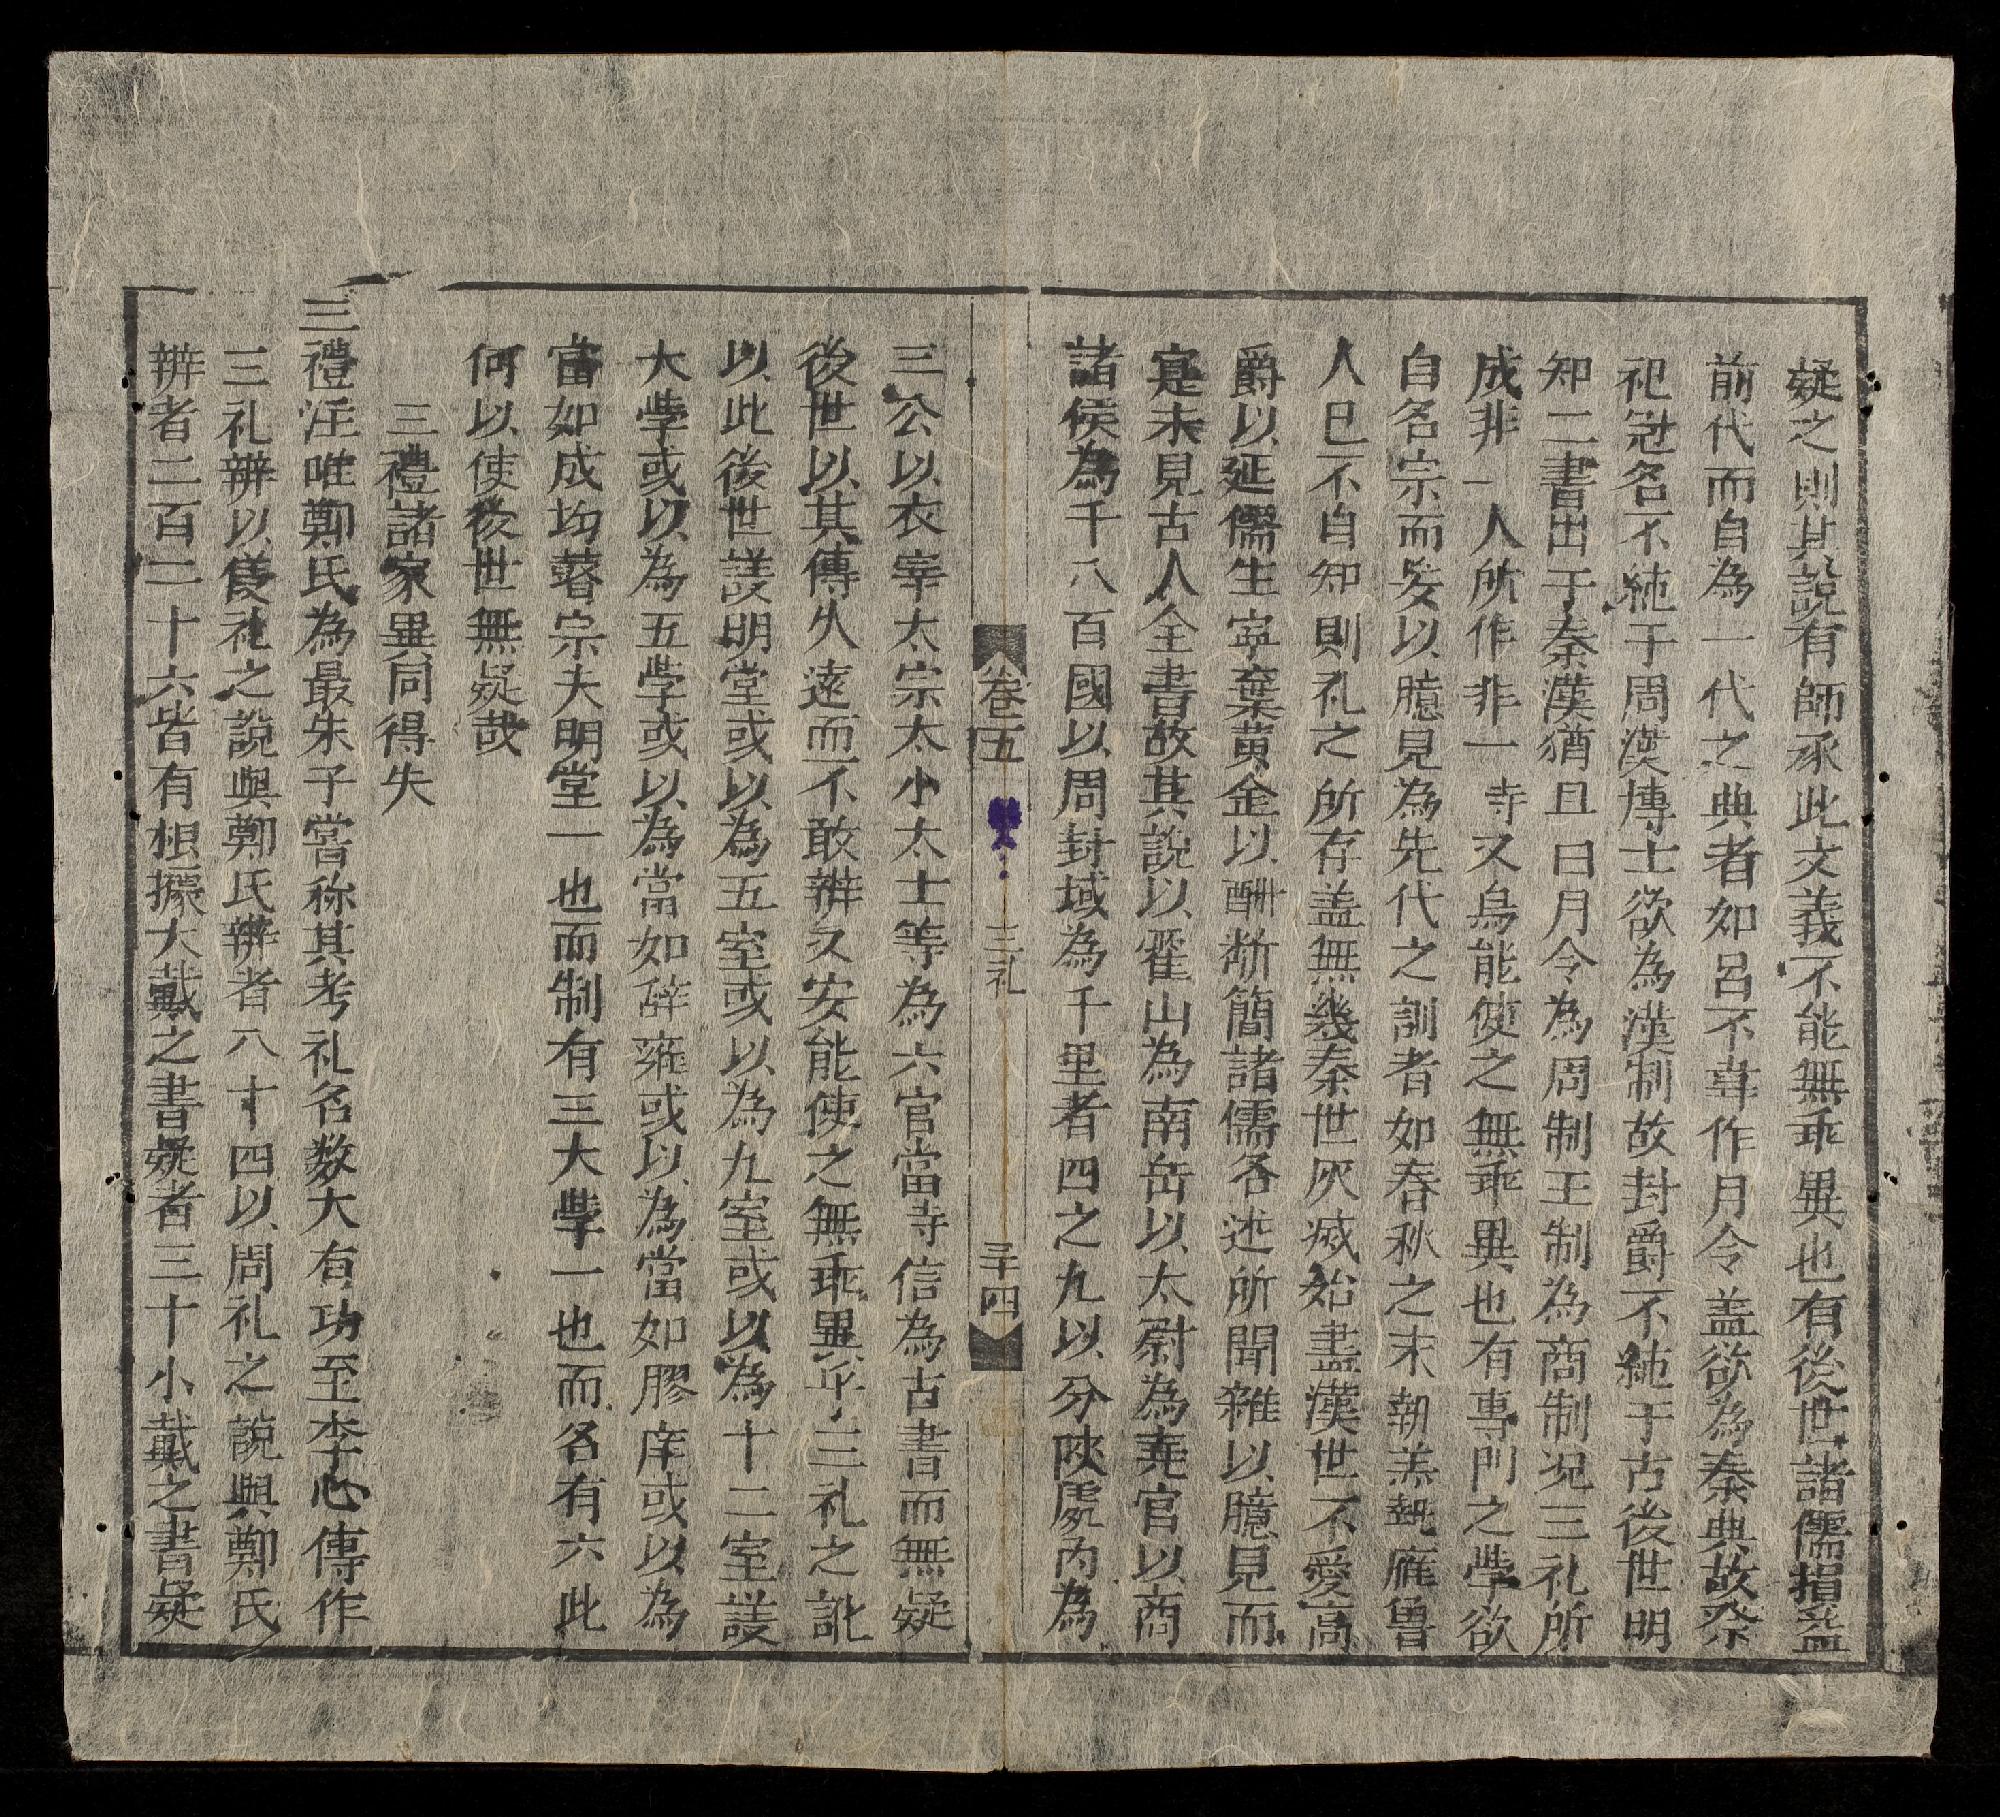 疑之則其説有師承此文義不能無乖異也有後世諸儒損益
前代而自為一代之典者如呂不韋作月令盖欲為秦典故祭
祀冠名不純于周漢博士欲為漢制故封爵不純于古後世明
知二書出于秦漢猶且曰月令為周制王制為商制况三礼所
成非一人所作非一寺又烏能使之無乖異也有專門之學欲
自名宗而妄以臆見為先代之訓者如春秋之末朝羔執雁魯
人已不自知則礼之所存盖無幾秦世灰滅始盡漢世不愛高
爵以延儒生寧棄黄金以酬断簡諸儒各述所聞雜以臆見而
寔未見古人全書故其説以霍山為南岳以太尉為堯官以商
諸侯為千八百國以周封域為千里者四之九以分陜處内為
卷五
三礼
三十四
三公以衣宰太宗太小太士等為六官當寺信為古書而無疑
後世以其傳久遠而不敢辨又安能使之無乖異乎三礼之訛
以此後世議明堂或以為五室或以為九室或以為十二室議
大學或以為五學或以為當如辟雍或以為當如膠庠或以為
當如成均瞽宗夫明堂一也而制有三大學一也而各有六此
何以使後世無疑哉
三禮諸家異同得失
三禮注唯鄭氏為最朱子嘗称其考礼名数大有功至李心傳作
三礼辨以儀礼之説與鄭氏辨者八十四以周礼之説與鄭氏
辨者二百二十六皆有根據大戴之書疑者三十小戴之書疑